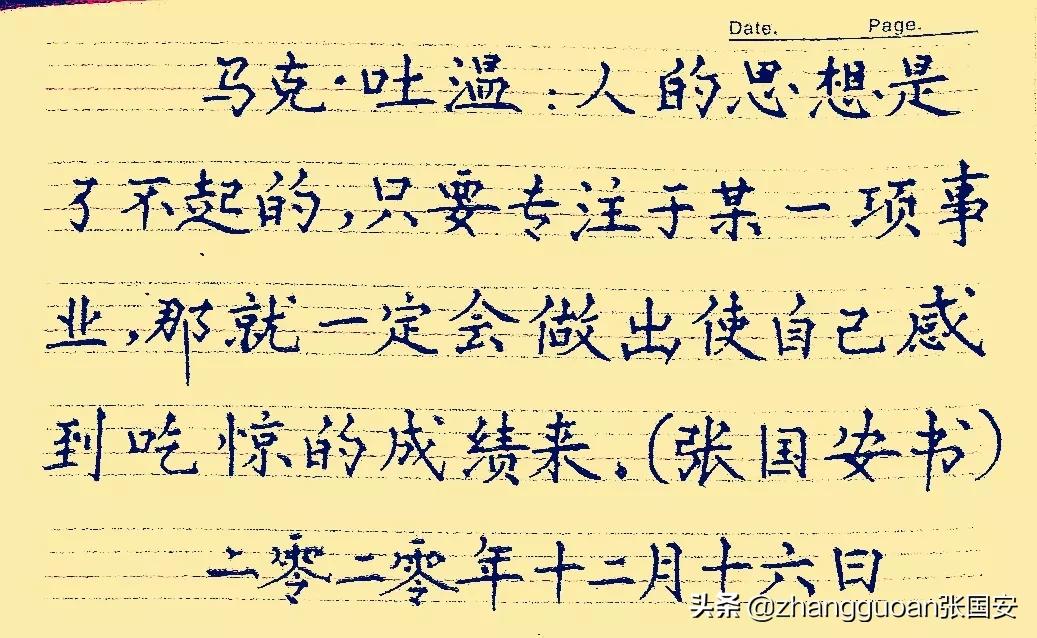 Date. Page.
马克·吐温:人的思想是
了不起的,只要专注于某一项事
业,那就一定会做出使自己感
到吃惊的成绩来.(张国安书)
二零二零年十二月十六日
头条 @zhangguoan张国安